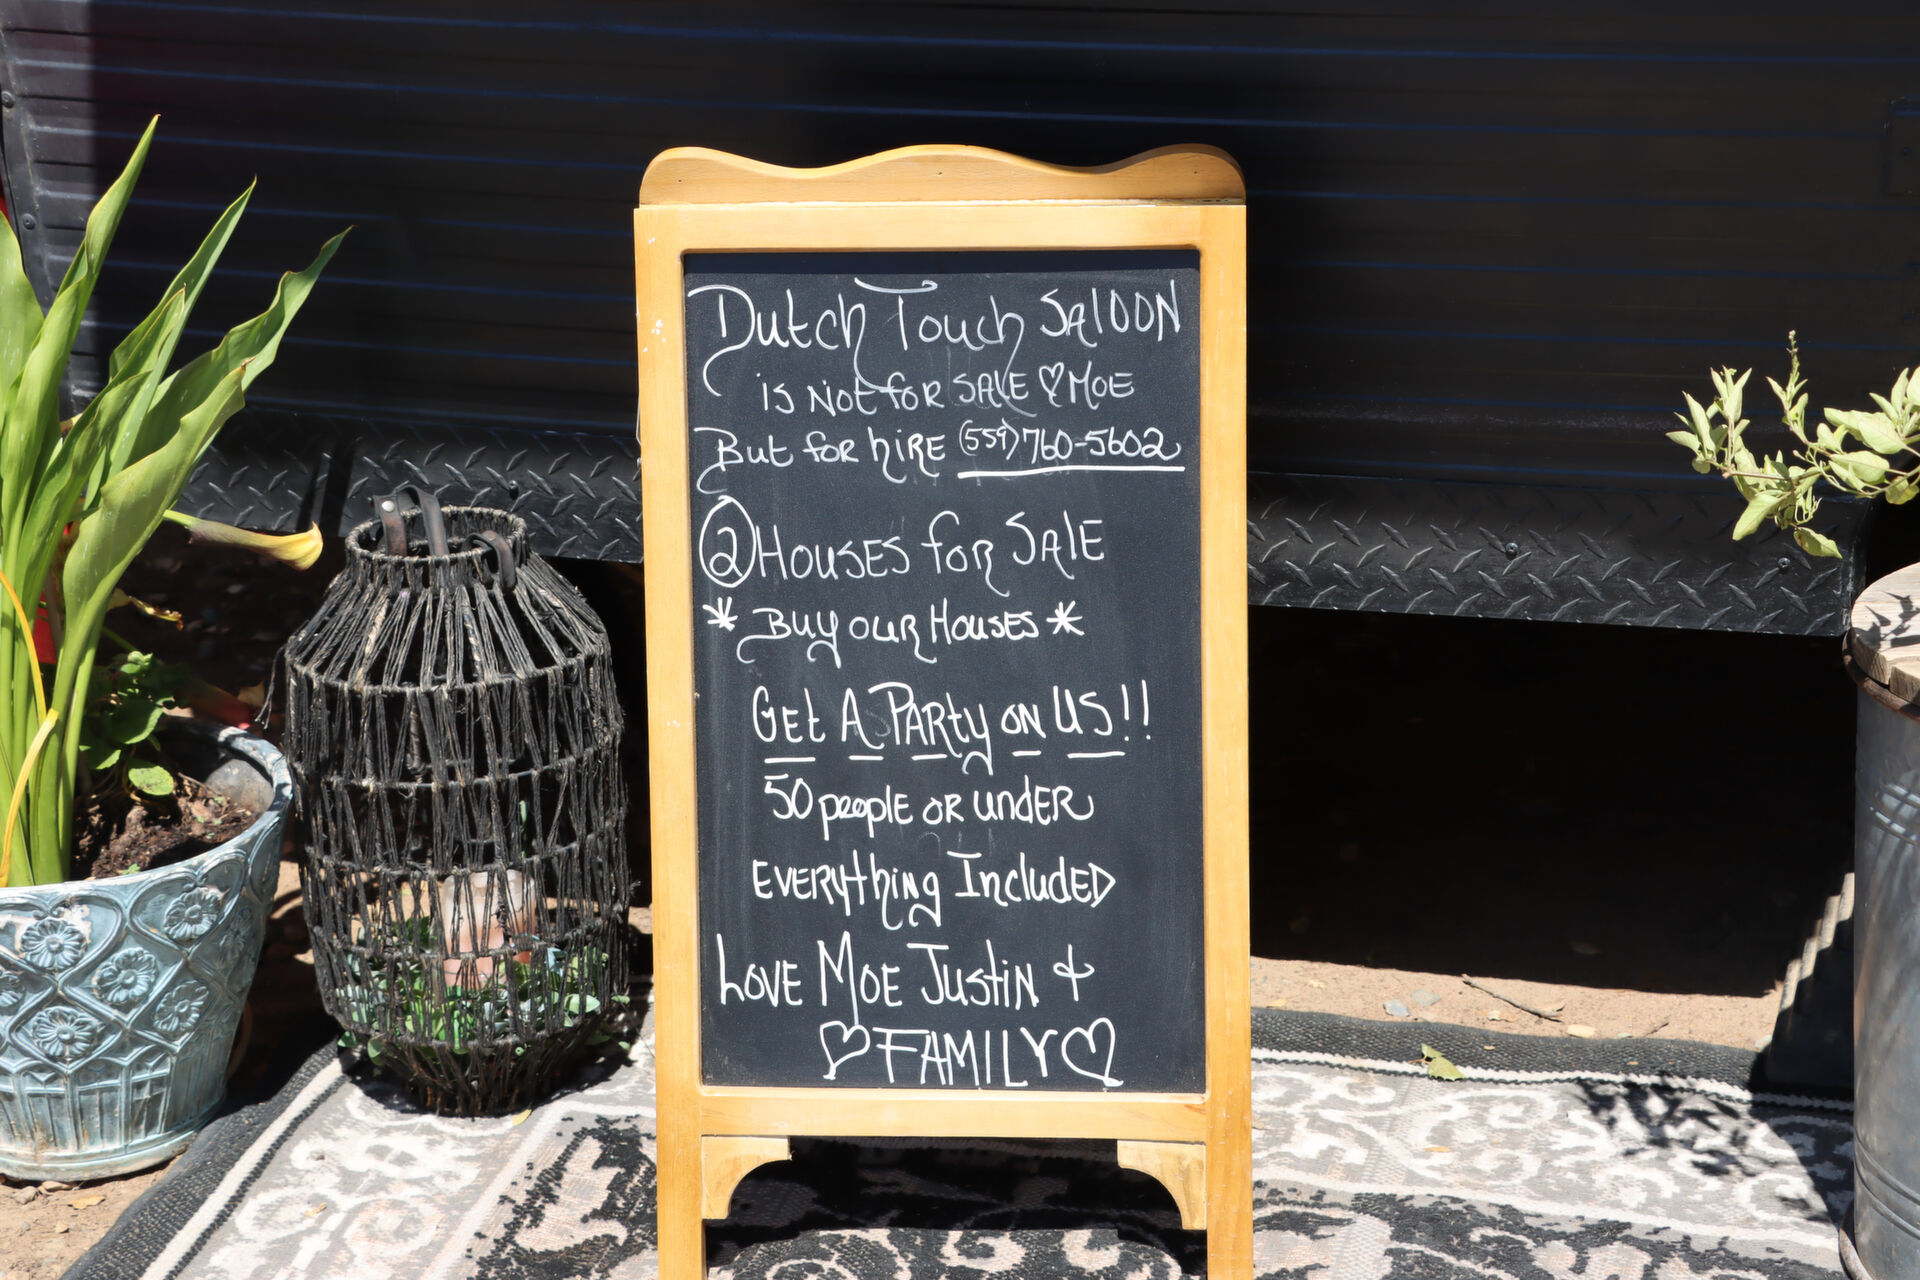 Dutch Touch SAlOON
is Not for SALE ♡ MOE
But for hiRE (559) 760-5602
② HOUSES for SAlE
* Buy OUR HOUSES *
GEt A PARty ON US!!
50 people OR UndER
EVERYthing IncludED
LOVE MOE JUStIN &
♡ FAMILY ♡